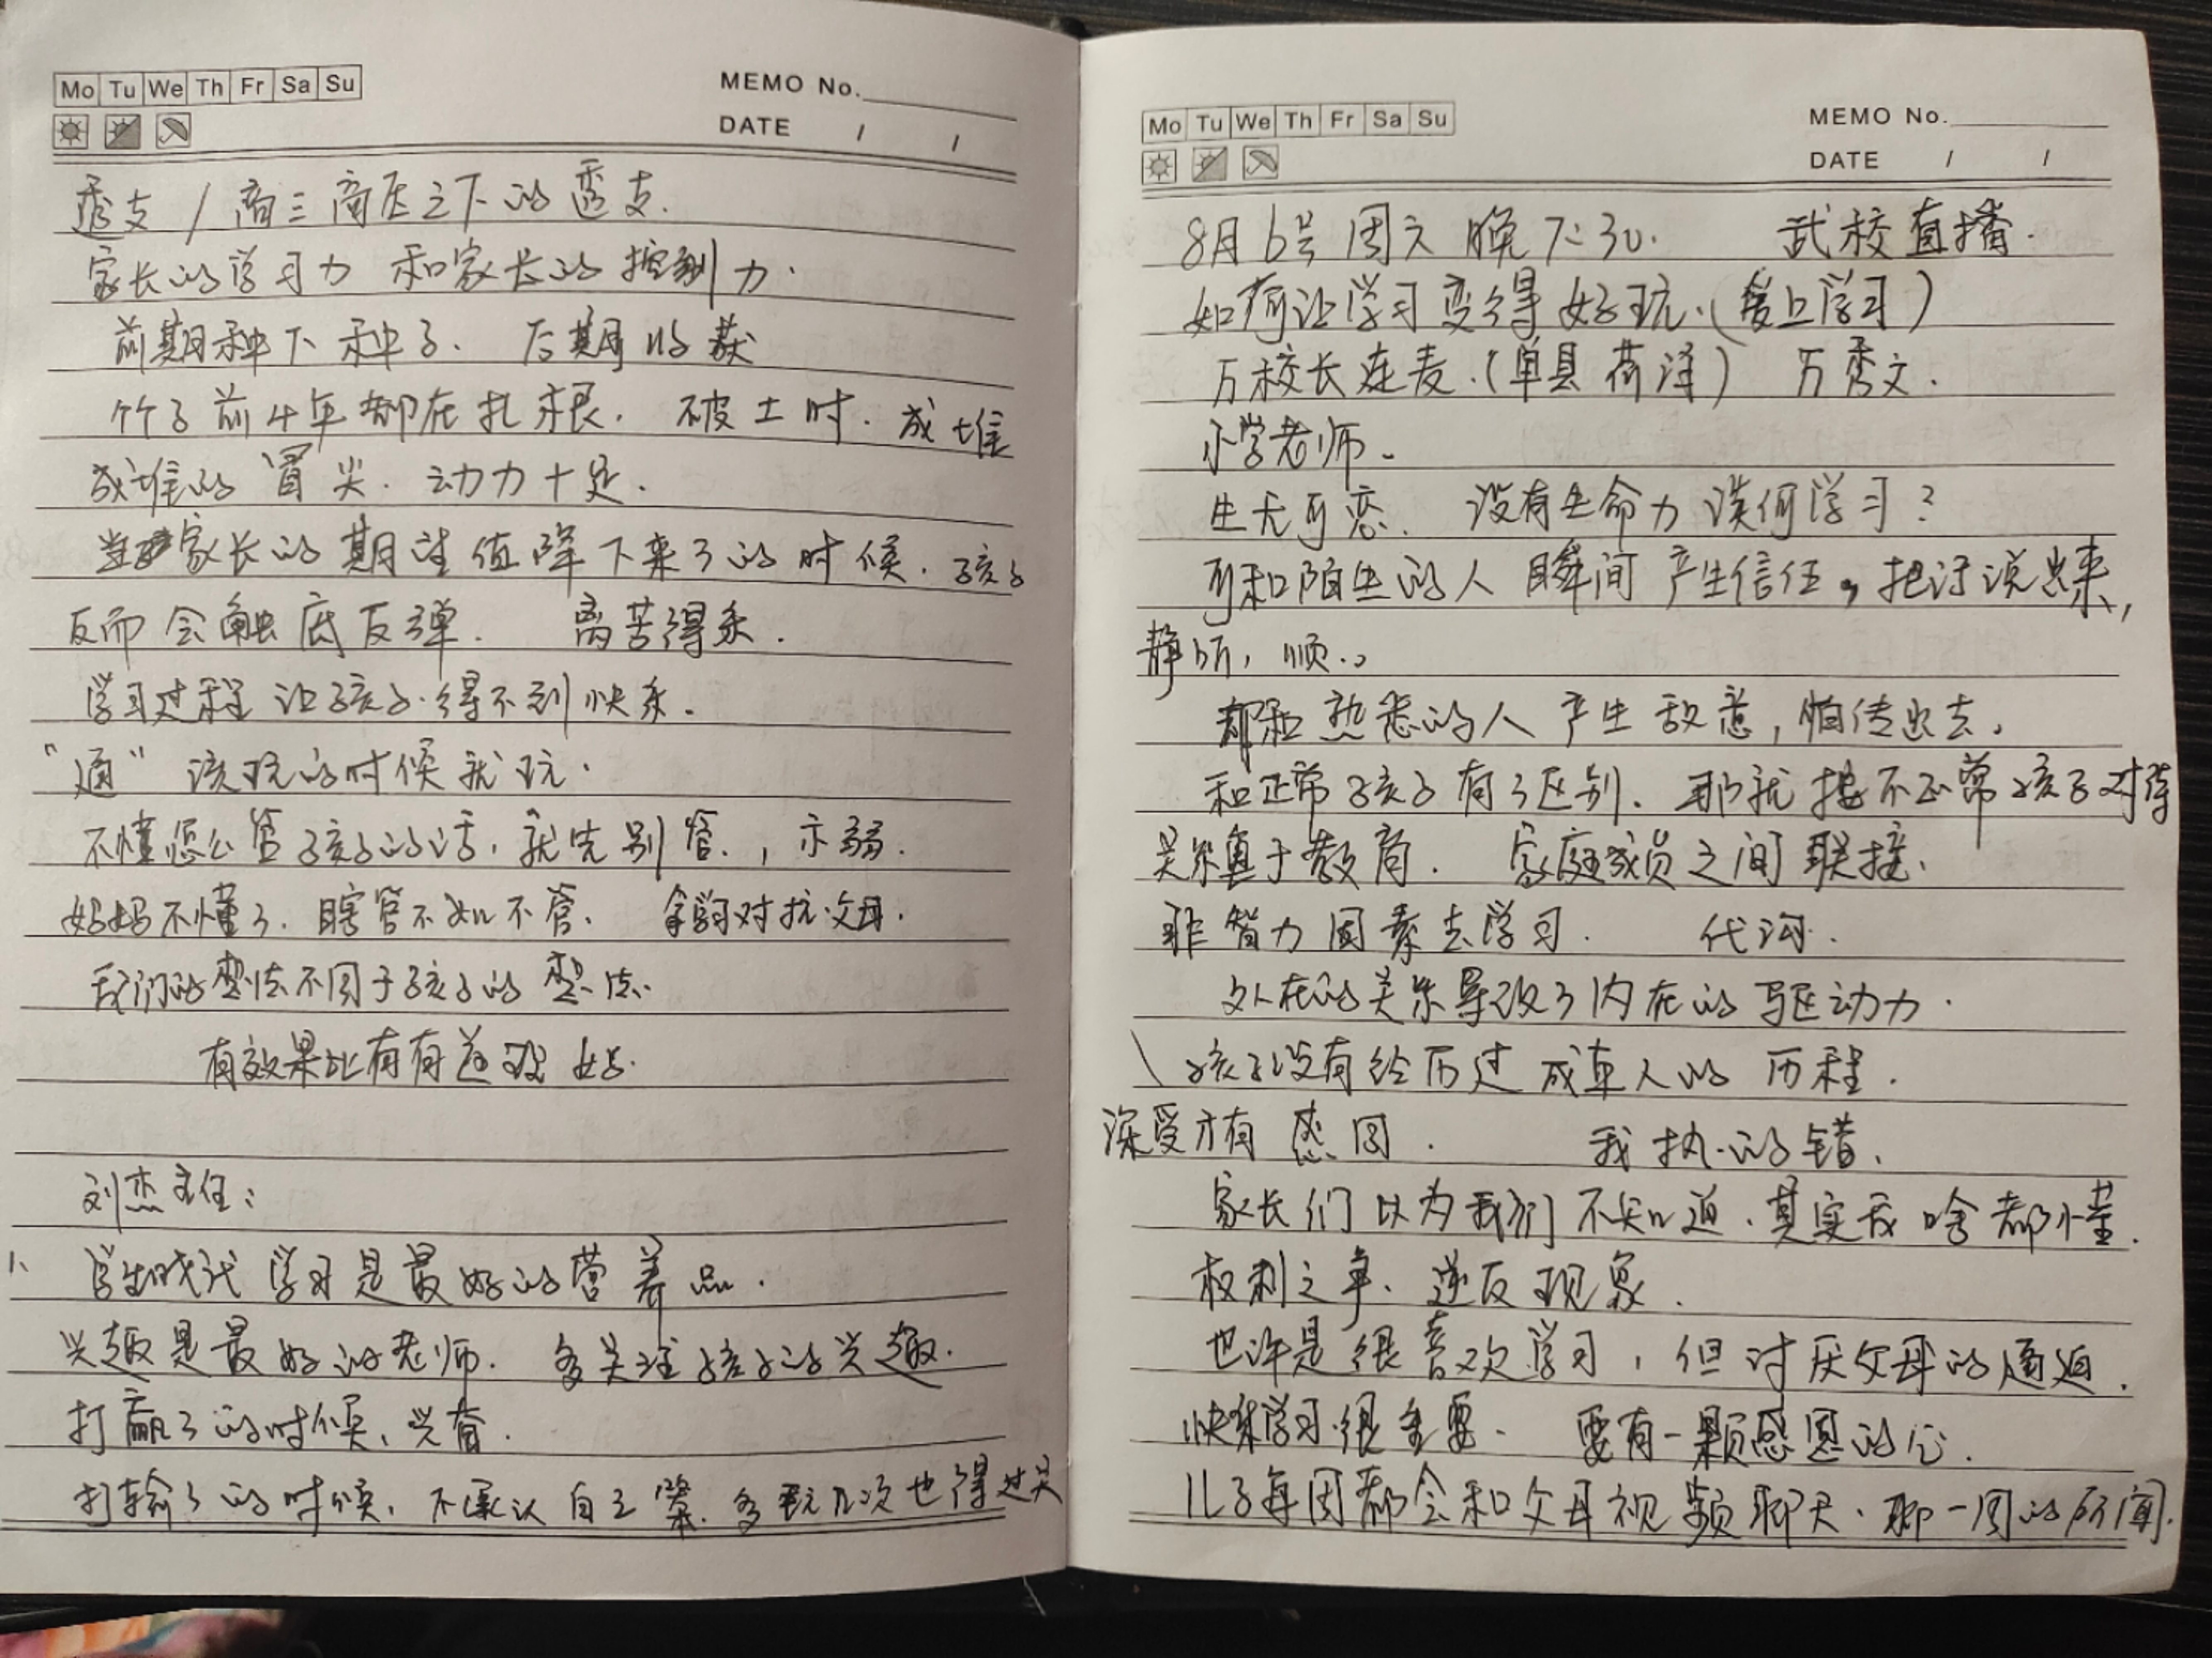 Mo Tu We Th Fr Sa Su
MEMO No.
DATE / /
透支 / 高三高压之下的透支.
家长的学习力 和家长的控制力.
前期种下种子. 后期收获
竹子前4年都在扎根. 破土时. 成堆
成堆的冒尖. 动力十足.
当家长的期望值降下来了的时候. 孩子
反而会触底反弹. 离苦得乐.
学习过程让孩子得不到快乐.
"通" 该玩的时候就玩.
不懂怎么管孩子的话, 就先别管, 示弱.
妈妈不懂了. 瞎管不如不管. 拿学习对抗父母.
我们的想法不同于孩子的想法.
有效果比有有道理好.
刘杰主任:
1、学生时代 学习是最好的营养品.
兴趣是最好的老师. 多关注孩子的兴趣.
打赢了的时候、兴奋.
打输了的时候, 不承认自己笨. 多玩几次也得过关
Mo Tu We Th Fr Sa Su
MEMO No.
DATE / /
8月6号周六晚7:30. 武校直播.
如何让学习变得好玩.(爱上学习)
万校长连麦.(单县 荷泽) 万秀文.
小学老师.
生无可恋. 没有生命力谈何学习?
可和陌生的人 瞬间产生信任, 把话说出来,
静听, 顺..
都和熟悉的人产生敌意, 怕传出去.
和正常孩子有了区别. 那就按不正常孩子对待
关系真于教育. 家庭成员之间联接.
非智力因素去学习. 代沟.
外在的关系导致了内在的驱动力.
\ 孩子没有经历过成年人的历程.
深受才有感同. 我执的错.
家长们以为我们不知道. 其实我啥都懂.
权利之争. 逆反现象.
也许是很喜欢学习, 但讨厌父母的逼迫.
快乐学习很重要. 要有一颗感恩的心.
儿子每周都会和父母视频聊天. 聊一周的所闻.